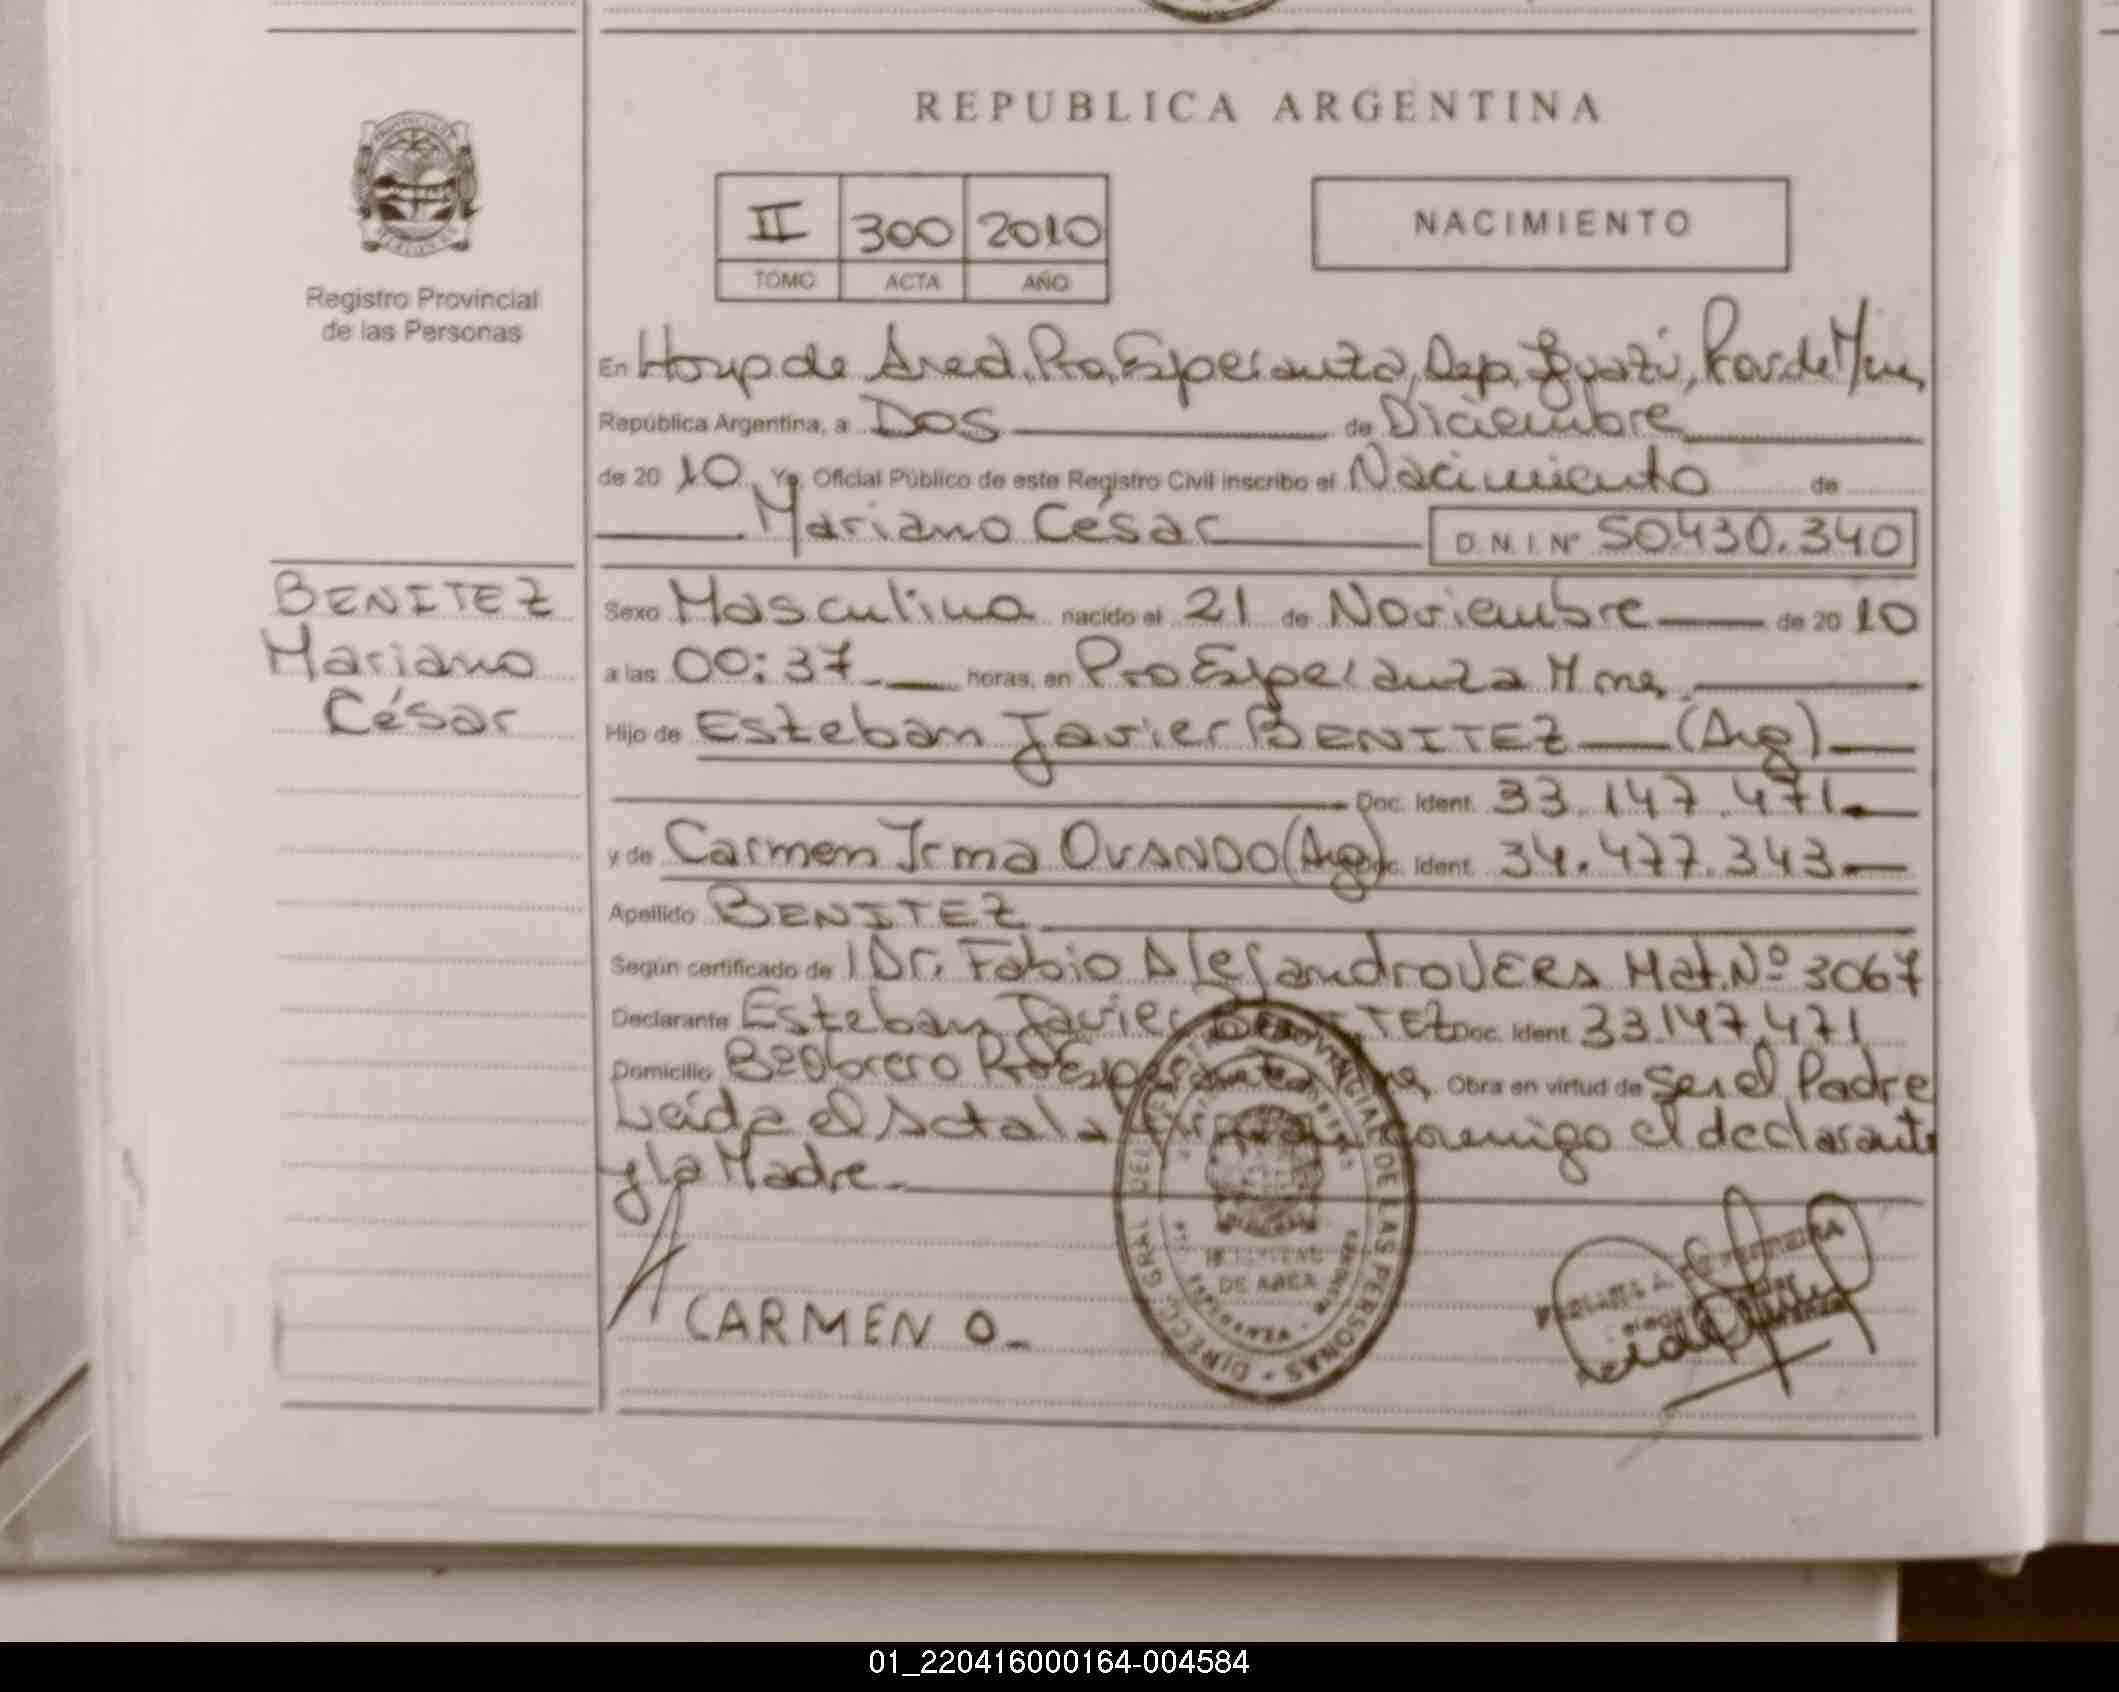 REPUBLICA ARGENTINA
II 300 2010
TOMO ACTA AÑO
NACIMIENTO
Registro Provincial
de las Personas
En Hosp. de Area. Pto. Esperanza, Dep. Iguazú, Prov. de Mnes,
República Argentina, a Dos de Diciembre
de 20 10 Yo, Oficial Público de este Registro Civil inscribo el Nacimiento de
Mariano César D.N.I. Nº 50.430.340
BENITEZ
Mariano
César
Sexo Masculino nacido el 21 de Noviembre de 20 10
a las 00:37 horas, en Pto Esperanza Mnes,
Hijo de Esteban Javier BENITEZ (Arg)
Doc. Ident. 33.147.471
y de Carmen Irma OVANDO (Arg) Doc. Ident. 34.477.343
Apellido BENITEZ
Según certificado de Dr. Fabio Alejandro VERA Mat. Nº 3067
Declarante Esteban Javier BENITEZ Doc. Ident. 33.147.471
Domicilio Bº Obrero Pto Esperanza Mnes, Obra en virtud de Ser el Padre
Leída el Acta la firman conmigo el declarante
y la Madre.
CARMEN O.
DIRECC. GRAL. DEL REGISTRO PROVINCIAL DE LAS PERSONAS
DE AREA
01_220416000164-004584